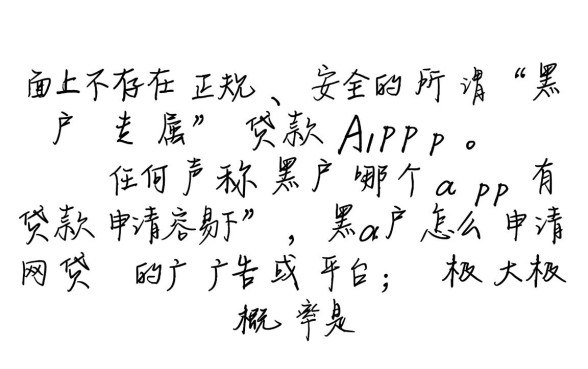 面上不存在正规、安全的所谓“黑
户专属”贷款A1ppp。
任何声称黑户哪个app有
贷款申请容易下”，黑a户怎么申请
网贷的广广告或平台；极大极
概率是